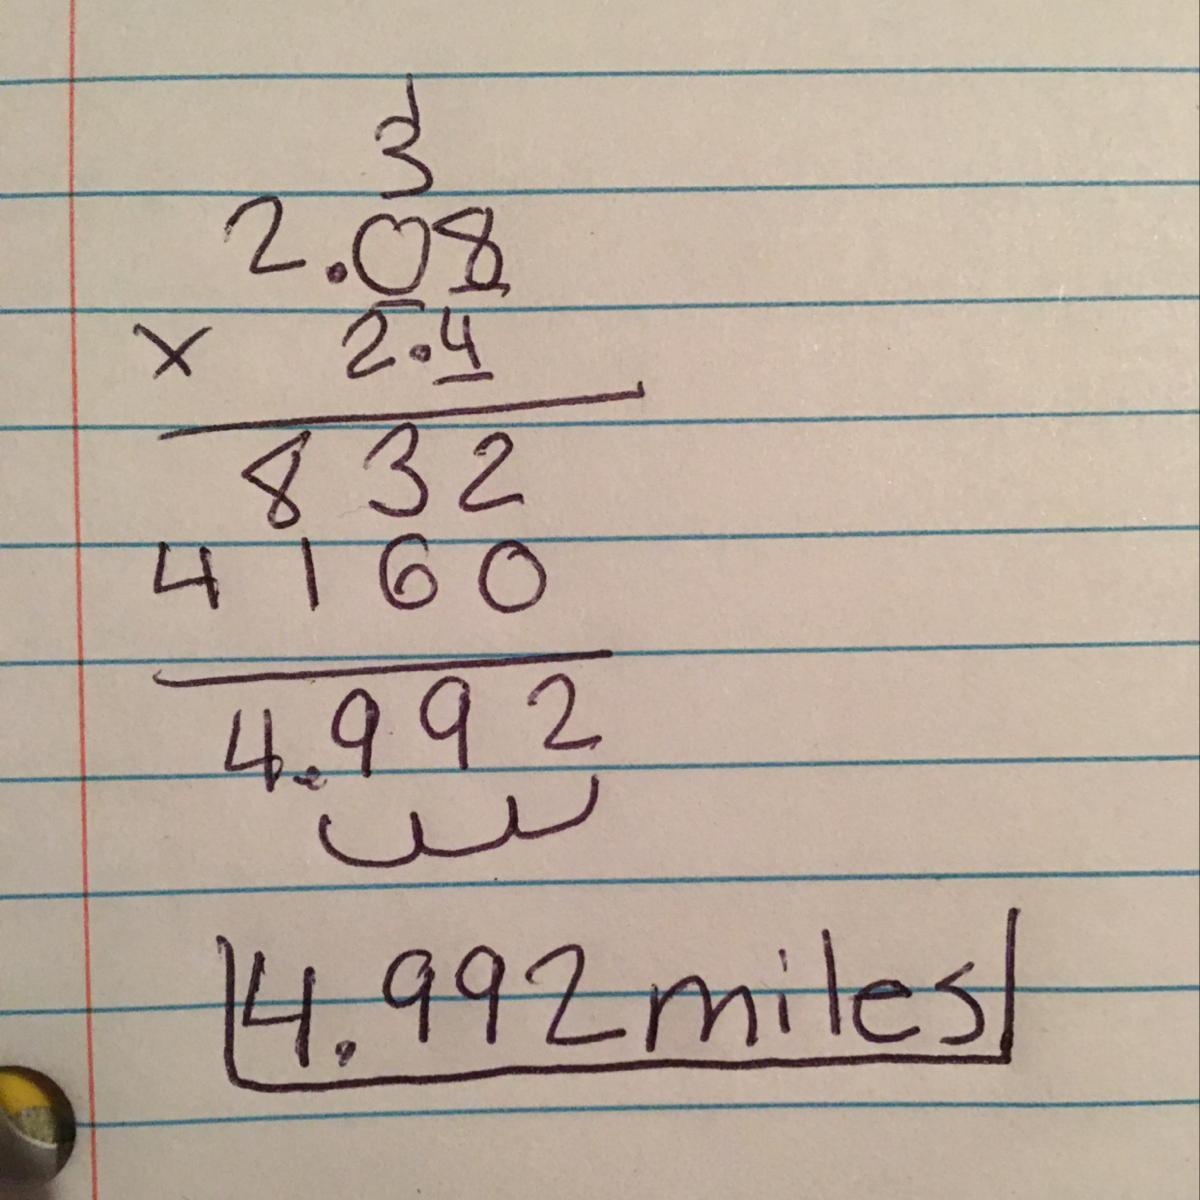 1
3
2.08
x 2.4
832
4160
4.992
4.992 miles